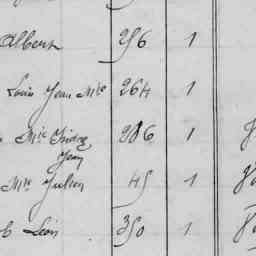 Albert 256 1
Louis Jean Mie 264 1
Mie Isidre 206 1
Jean
Mie Julien 45 1
Léon 350 1